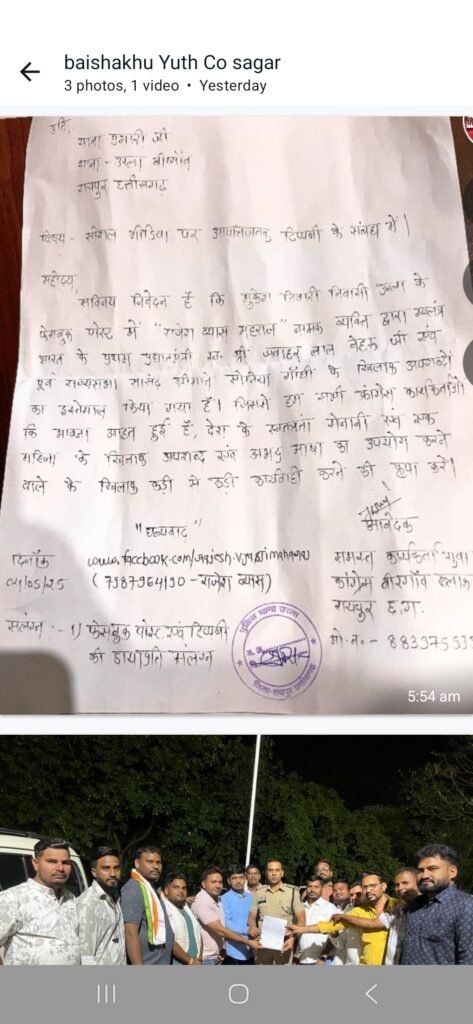 baishakhu Yuth Co sagar
3 photos, 1 video • Yesterday
प्रति,
थाना प्रभारी जी
थाना - उरला बीरगांव
रायपुर छत्तीसगढ़
विषय - सोशल मीडिया पर आपत्तिजनक टिप्पणी के संबंध में।
महोदय,
सविनय निवेदन है कि मुकेश तिवारी निवासी उरला के
फेसबुक पोस्ट में "राजेश व्यास महराज" नामक व्यक्ति द्वारा स्वतंत्र
भारत के प्रथम प्रधानमंत्री स्व. श्री जवाहर लाल नेहरू जी एवं
पूर्व राज्यसभा सांसद श्रीमति सोनिया गाँधी के खिलाफ अपशब्दो
का इस्तेमाल किया गया है। जिससे हम सभी कांग्रेस कार्यकर्ताओं
कि भावना आहत हुई है, देश के स्वतंत्रता सेनानी एवं एक
महिला के खिलाफ अपशब्द एवं अभद्र भाषा का उपयोग करने
वाले के खिलाफ कड़ी से कड़ी कार्यवाही करने की कृपा करें।
"धन्यवाद"
आवेदक
दिनाँक
04/05/25
www.facebook.com/rajesh.vyasjimaharaj
(7987964190 - राजेश व्यास)
समस्त कार्यकर्ता युवा
कांग्रेस बीरगाँव ब्लाक
रायपुर छ.ग.
मो. न. - 88397553
संलग्न :- 1) फेसबुक पोस्ट एवं टिप्पणी
की छायाप्रति संलग्न
पुलिस थाना उरला
जिला-रायपुर छत्तीसगढ़
5:54 am